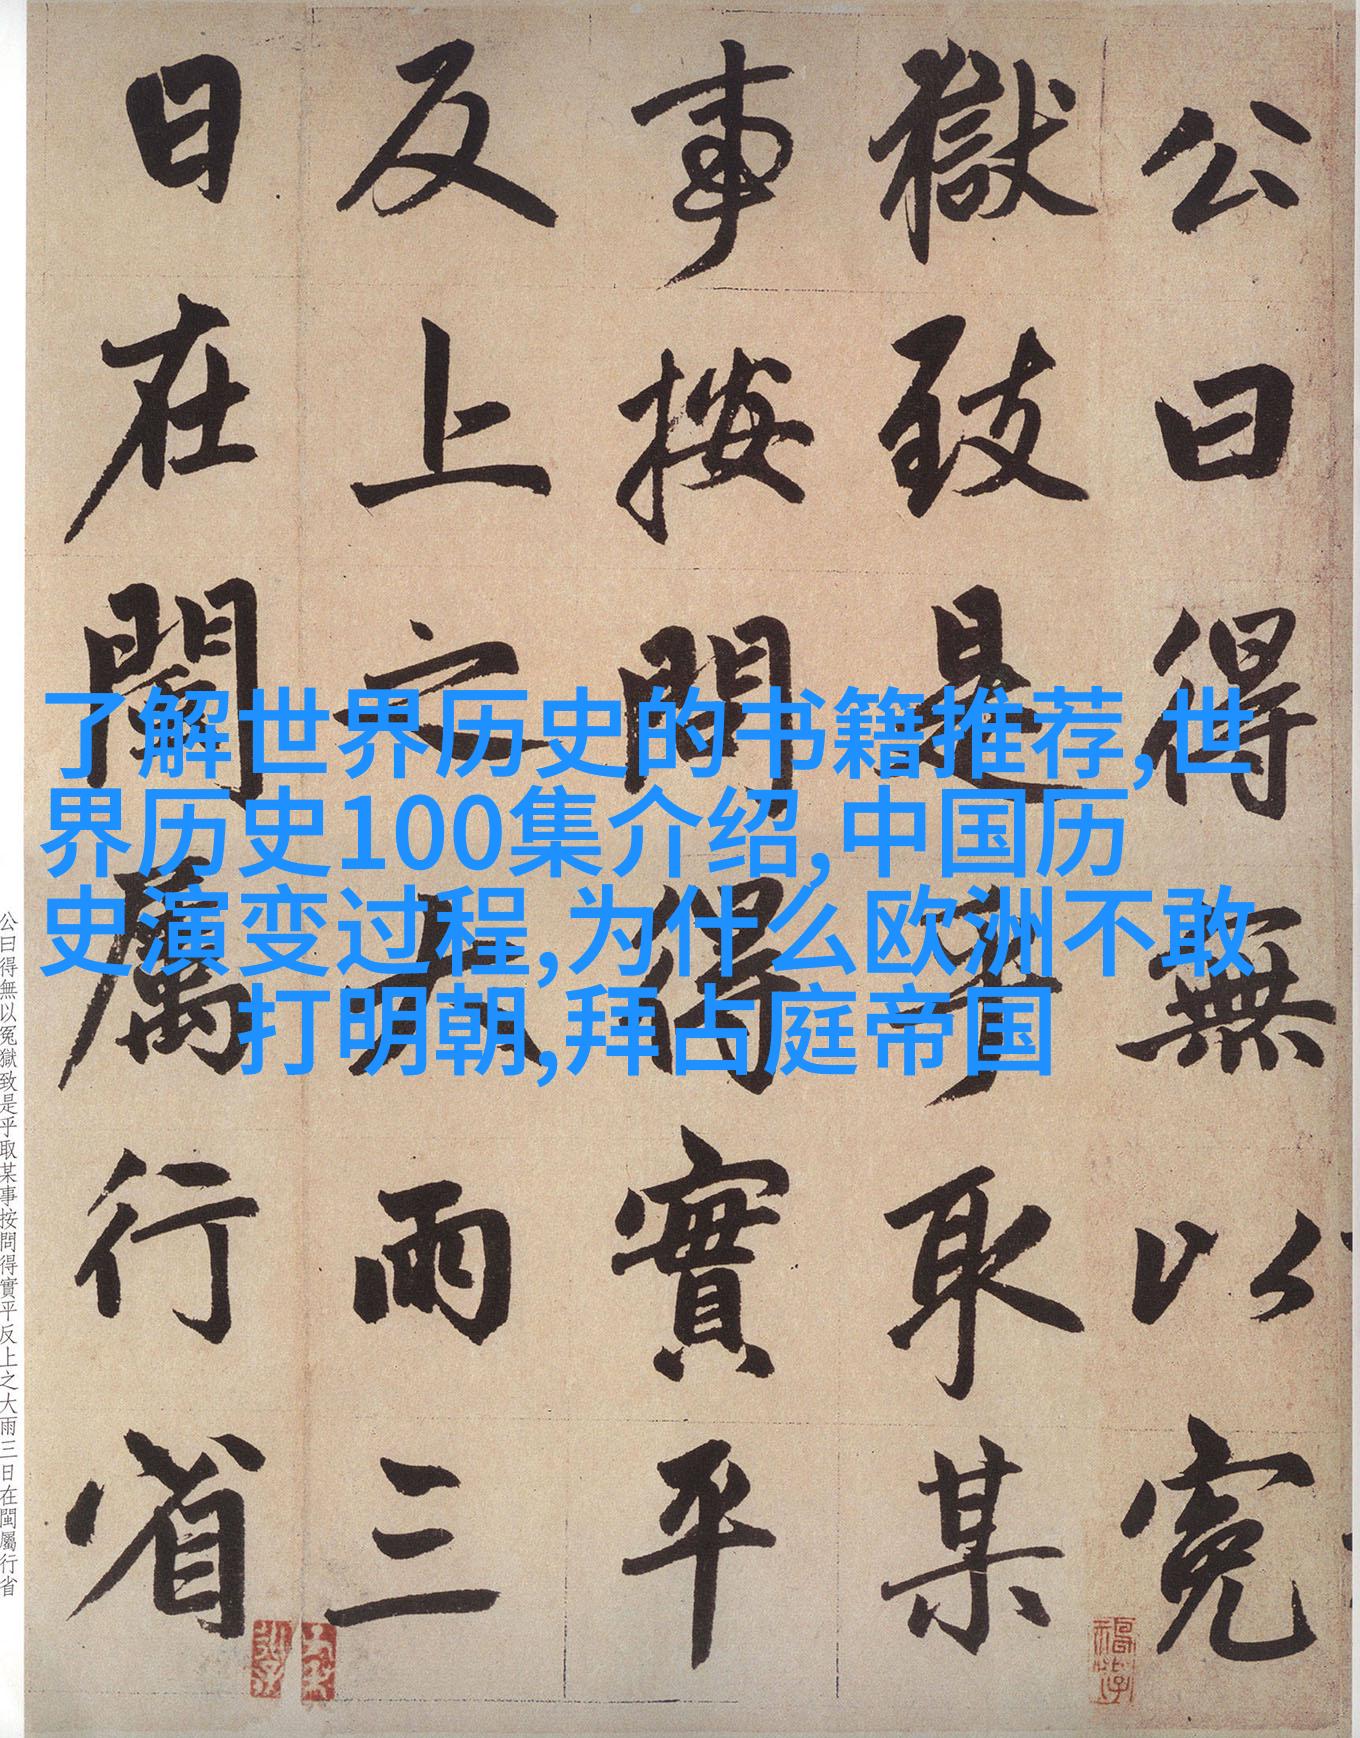 公曰得無以冤
獄致是乎取某
事按問得實平
反上之大雨三
日在閩屬行省
了解世界历史的书籍推荐,世
界历史100集介绍,中国历
史演变过程,为什么欧洲不敢
打明朝,拜占庭帝国
公曰得無以冤獄致是乎取某事按問得實平反上之大雨三日在閩屬行省